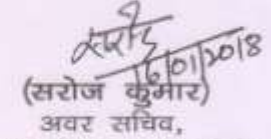 सरोज
16/01/2018
(सरोज कुमार)
अवर सचिव,